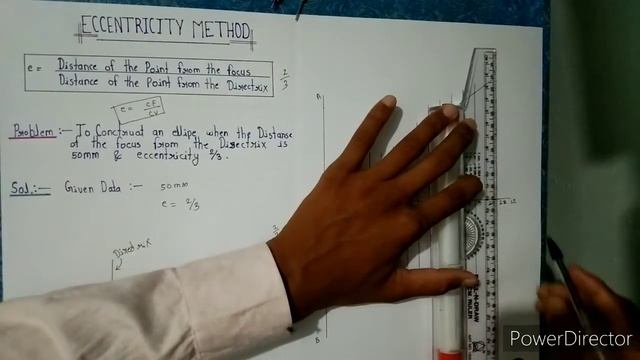 ECCENTRICITY METHOD
e = Distance of the Point from the focus
Distance of the Point from the Directrix
2/3
e = CF/CV
Problem:- To Construct an ellipse when the Distance
of the focus from the Directrix is
50mm & eccentricity 2/3.
Sol:- Given Data :- 50mm
e = 2/3
Directrix
A
B
PowerDirector